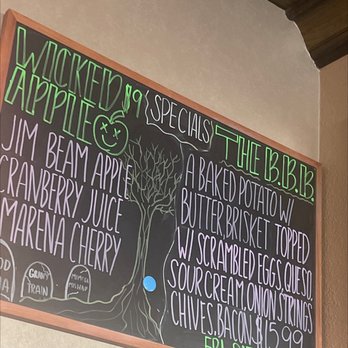 WICKED $9
APPLE
JIM BEAM APPLE
CRANBERRY JUICE
MARENA CHERRY
SPECIALS
THE B.B.B.
A BAKED POTATO W/
BUTTER BRISKET TOPPED
W/ SCRAMBLED EGGS, QUESO,
SOUR CREAM, ONION STRINGS
CHIVES, BACON $15.99
TRAIN